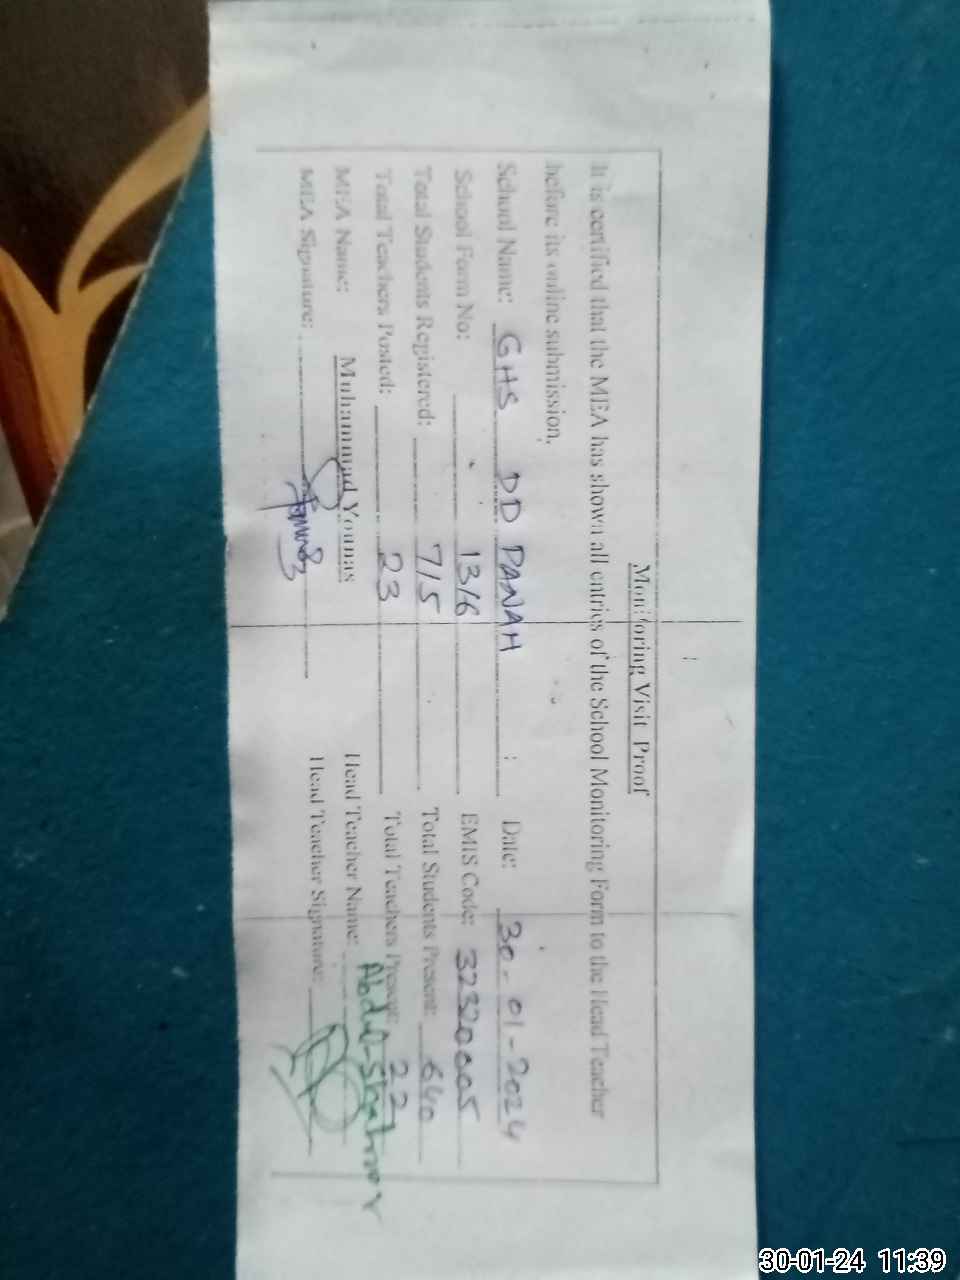 Monitoring Visit Proof
It is certified that the MEA has shown all entries of the School Monitoring Form to the Head Teacher
before its online submission.
School Name: GHS DD PANAH Date: 30-01-2024
School Form No: 1316 EMIS Code: 32320005
Total Students Registered: 715 Total Students Present: 640
Total Teachers Posted: 23 Total Teachers Present: 22
MEA Name: Muhammad Younas Head Teacher Name:
MEA Signature: Head Teacher Signature:
30-01-24 11:39